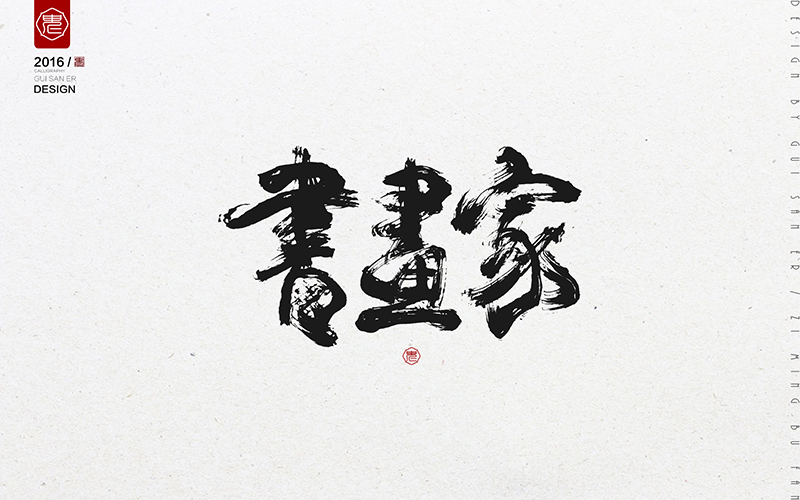 2016 / 書
CALLIGRAPHY
GUI SAN ER
DESIGN
書畫家
DESIGN BY GUI SAN ER / ZI MING BU FAN